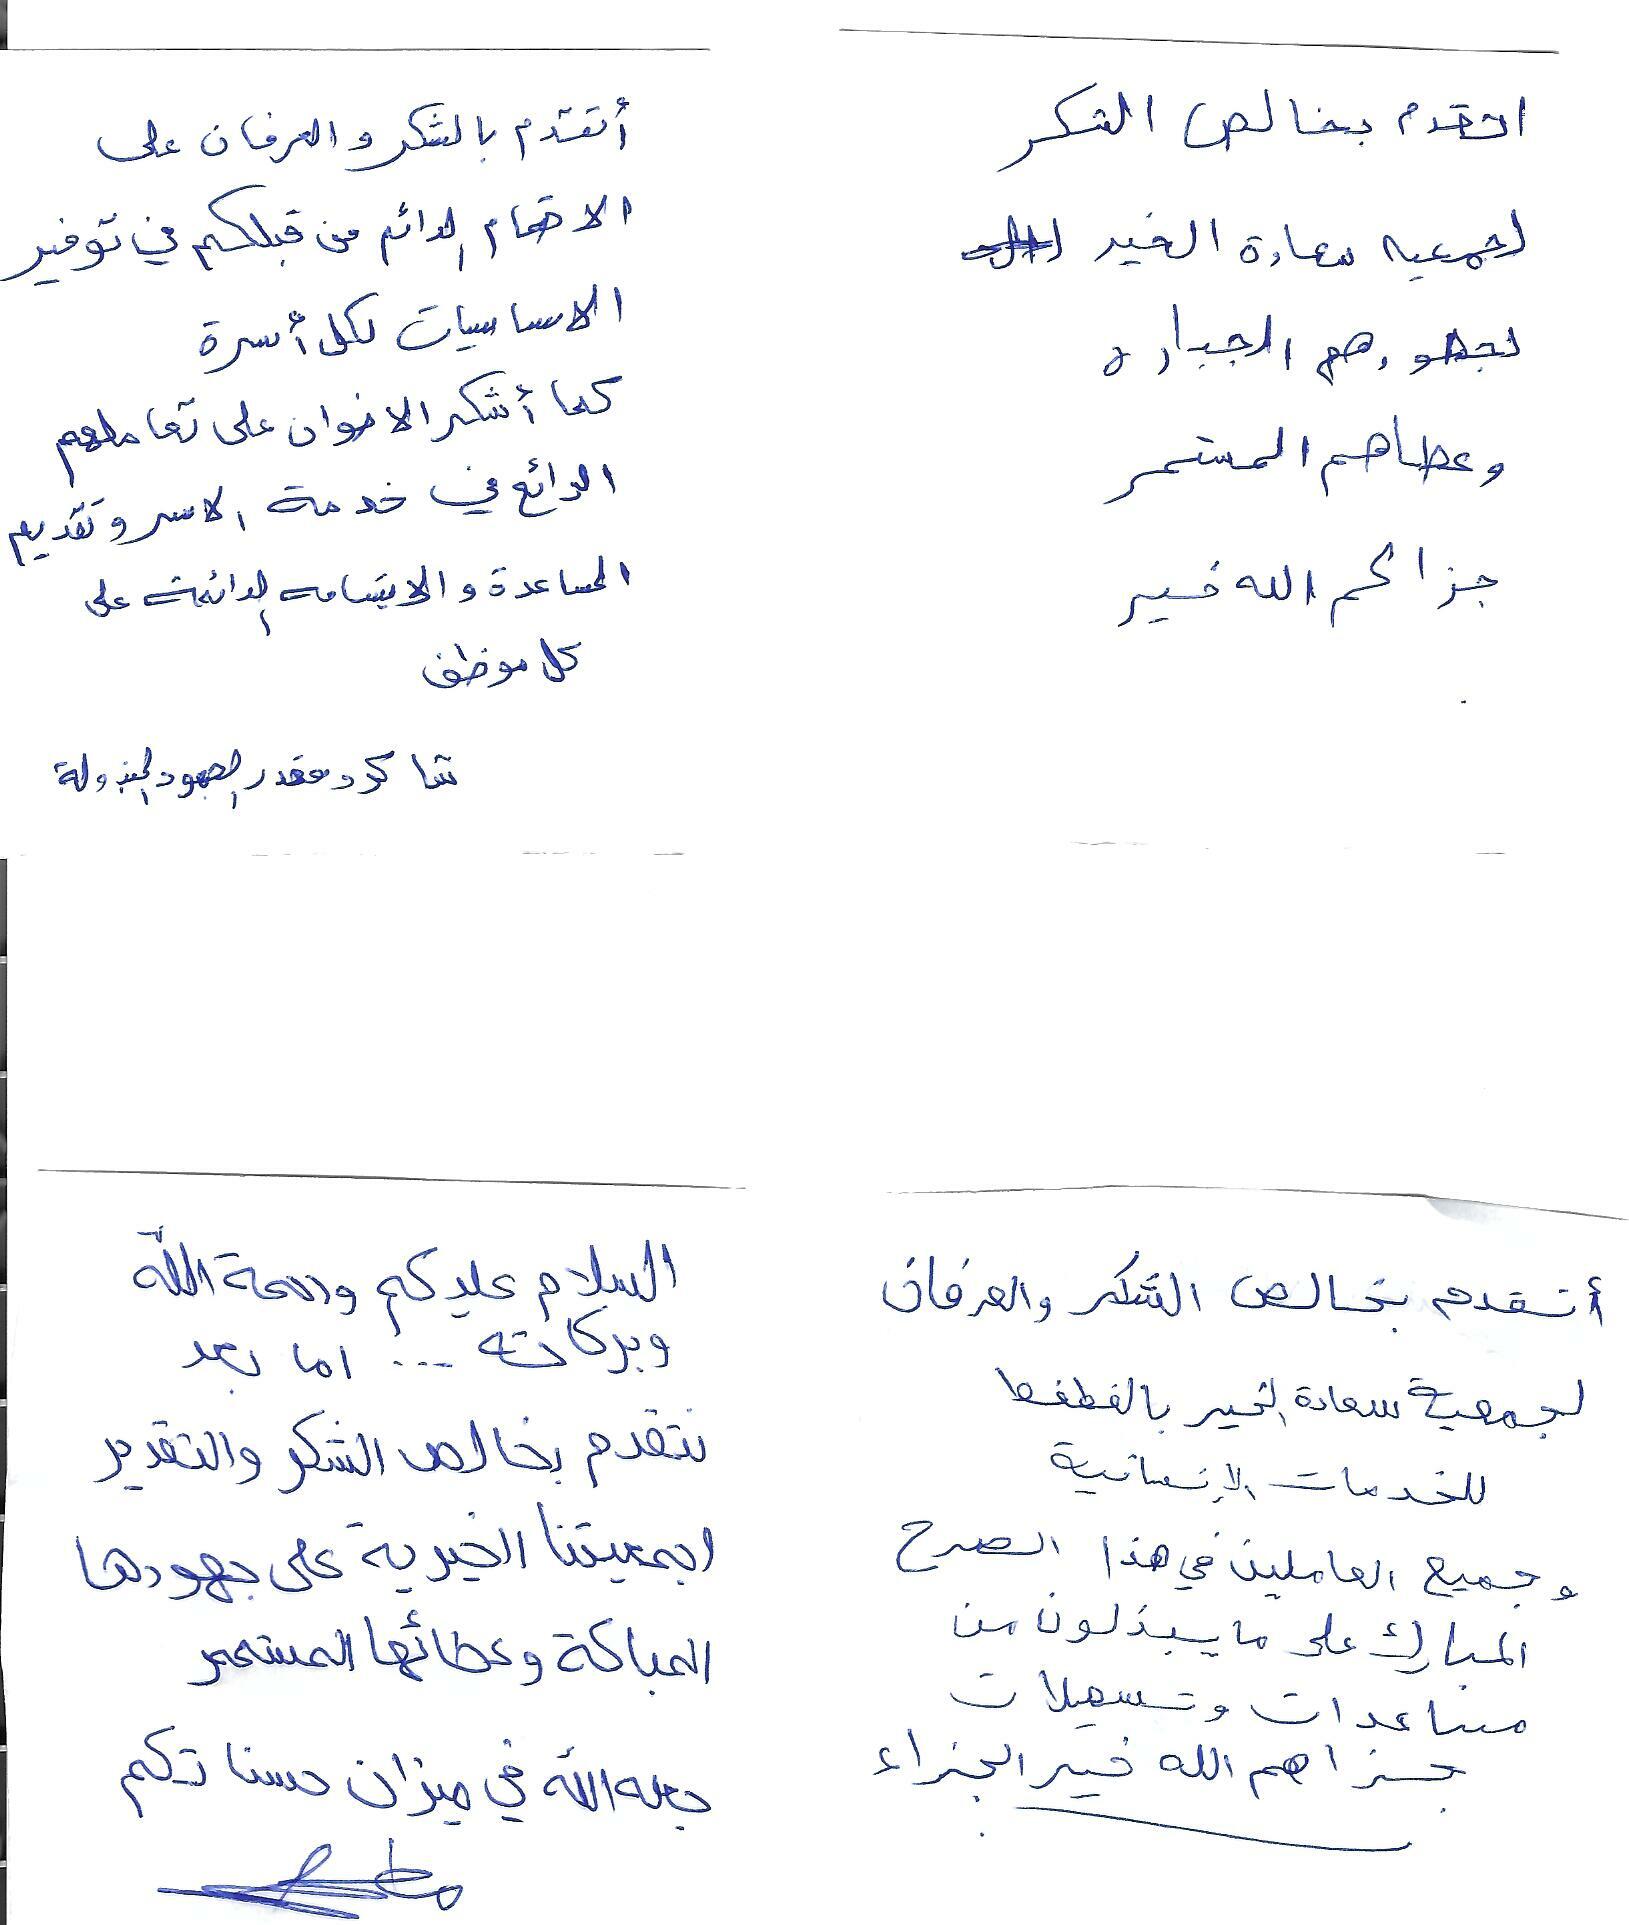 اتقدم بخالص الشكر
لجمعيه سعادة الخير
لجهودهم الجباره
وعطاهم المستمر
جزاكم الله خير
أتقدم بالشكر والعرفان على
الاهتمام الدائم من قبلكم في توفير
الاساسيات لكل أسرة
كما أشكر الاخوان على تعاملهم
الرائع في خدمة الاسر وتقديم
المساعدة والابتسامه الدائمة على
كل موظف
شاكر ومقدر الجهود المبذولة
أتقدم بخالص الشكر والعرفان
لجمعية سعادة الخير بالغطغط
للخدمات الإنسانية
وجميع العاملين في هذا الصرح
المبارك على ما يبذلون من
مساعدات وتسهيلات
جزاهم الله خير الجزاء
السلام عليكم ورحمة اللّه
وبركاته ... اما بعد
نتقدم بخالص الشكر والتقدير
لجمعيتنا الخيرية على جهودها
المباركة وعطائها المستمر
جعله اللّه في ميزان حسناتكم